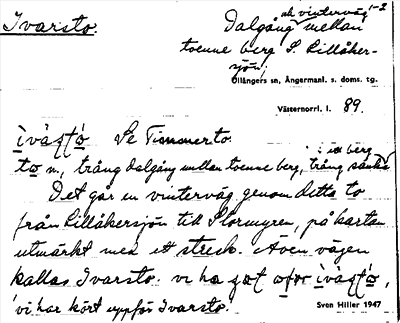 Ivarsto.
och vinterväg 1-2
Dalgång mellan
tvenne berg S. Lillåker-
sjön,
Ullångers sn, Ångermanl. s. doms. tg.
Västernorrl. l. 89.
ìvàsto Se Timmerto.
i ett berg
to n, trång dalgång mellan tvenne berg, trång sänka
Det går en vinterväg genom detta to
från Lillåkersjön till Stormyren, på kartan
utmärkt med ett streck. Även vägen
kallas Ivarsto. vi ha
'vi har kört uppför Ivarsto.
Sven Hiller 1947